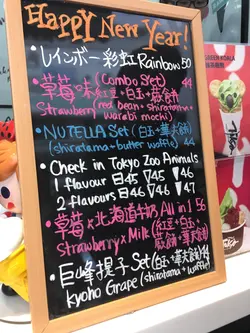 HAPPY NEW YEAR!
• レインボー彩虹Rainbow 50
• 草莓味 (Combo Set) 44
(紅豆+白玉+蕨餅)
Strawberry (red bean+shiratama+
warabi mochi)
• NUTELLA Set (白玉+華夫餅) 44
(shiratama+butter waffle)
• Check in Tokyo Zoo Animals
1 flavour 日45 ▽45 ▽46
2 flavours 日46 ▽46 ▽47
• 草莓×北海道牛奶 All in 1 56
Strawberry×Milk (紅豆+白玉+
蕨餅+華夫餅)
• 巨峰提子 Set (白玉+華夫餅) 44
Kyoho Grape (shiratama+waffle)
GREEN KOALA